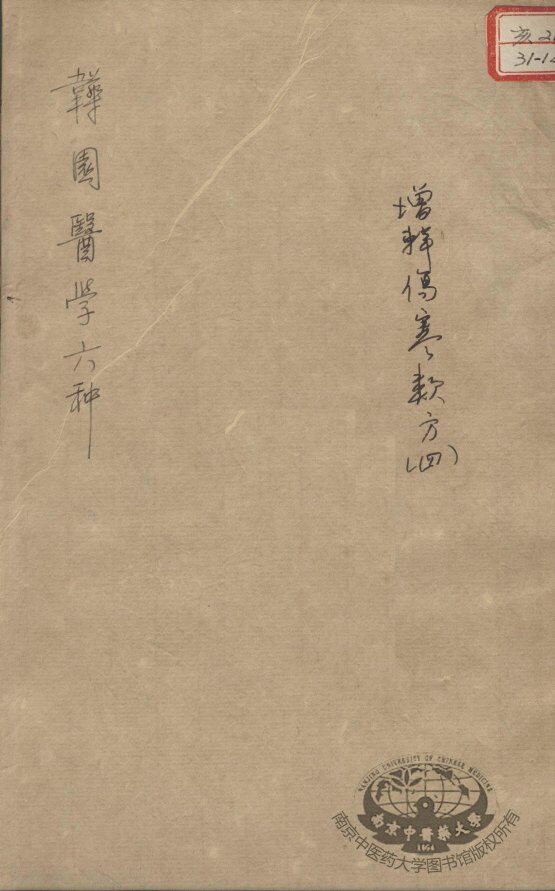 韡園醫学六种
增輯傷寒類方(四)
31-12
NANJING UNIVERSITY OF CHINESE MEDICINE
南京中醫藥大學
1954
南京中医药大学图书馆版权所有